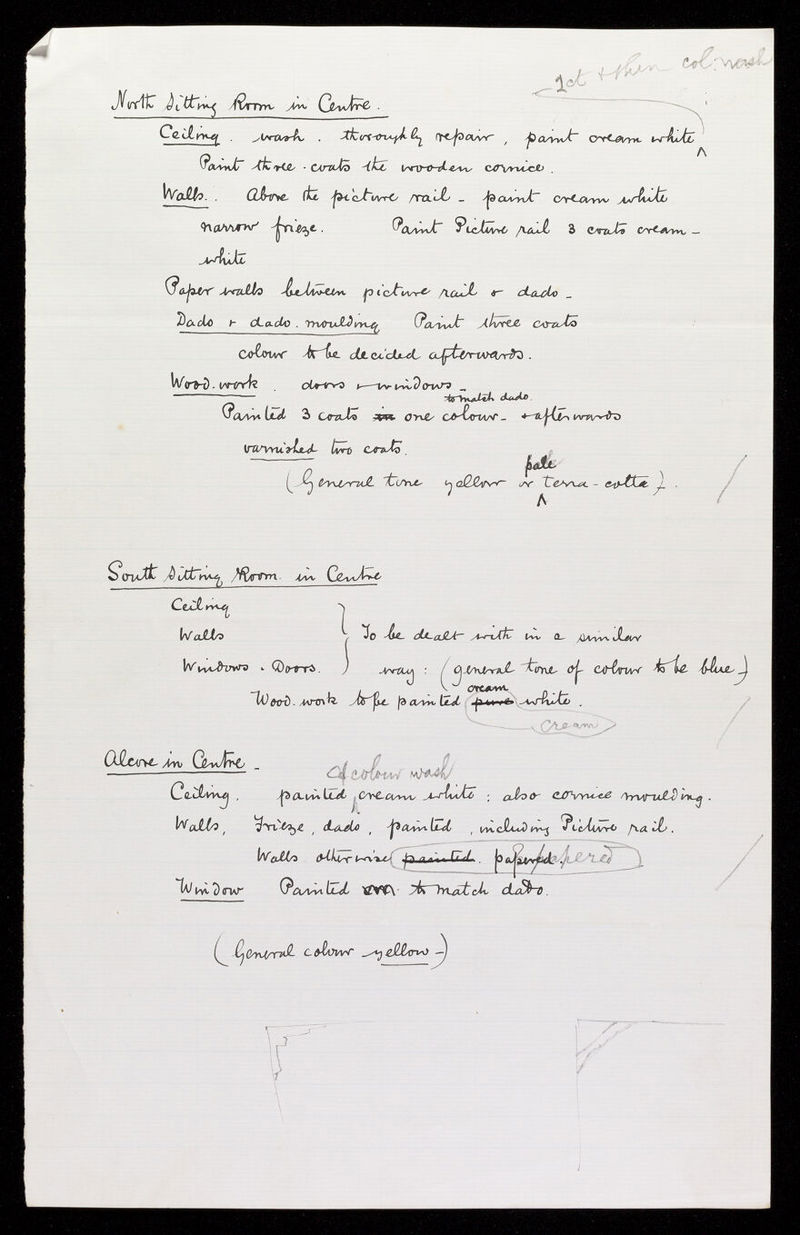 1ct & then col: wash
North Sitting Room in Centre.
Ceiling. wash. thoroughly repair, paint cream white
Paint three coats the wooden cornice.
Walls. Above the picture rail - paint cream white
narrow frieze. Paint Picture rail 3 coats cream -
white
Paper walls between picture rail & dado -
Dado & dado. moulding Paint three coats
colour to be decided afterwards.
Wood. work. doors & windows -
to match dado.
Painted 3 coats in one colour - & afterwards
varnished two coats.
pale
(General tone yellow or terra-cotta).
South Sitting Room in Centre
Ceiling
Walls To be dealt with in a similar
Windows. Doors. way: (general tone of colour to be blue-)
cream
Wood. work to be painted pure white.
cream
Alcove in Centre -
colour wash
Ceiling. painted cream white: also cornice moulding.
Walls, Frieze, dado, painted, including Picture rail.
Walls otherwise painted. papered. papered
Window Painted to match dado.
(General colour yellow-)